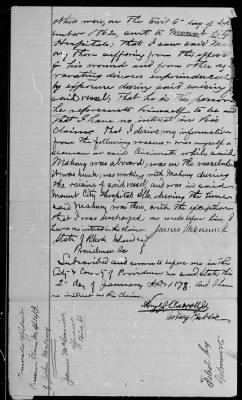 others were, on the tenth 6" day of Sept
ember 1862, sent to Mound City
Hospitals, that I saw said Ma
ony then suffering from the effects
of his wound and from other ag
ravating disease superinduced
by exposure during said raising
said vessel, that he is the person
he represents himself to be and
that I have no interest in this
Claim, that I derive my information
from the following reasons - was myself a
seaman on said Cincinnati while said
Mahony was aboard, was on the vessel when
it was sunk, was working with Mahony during
the raising of said vessel, and was in said
Mound City Hospital Ills, during the time
said Mahony was there, with the exception
that I was discharged as well before him I
have no interest in this claim James McCormick
State of Rhode Island
Providence Sc
Subscribed and sworn to before me in the
City & County of Providence in said State this
2d day of January A.D. 1878. And I have
no interest in this Claim.
Notary Public
James McCormick
Filed by